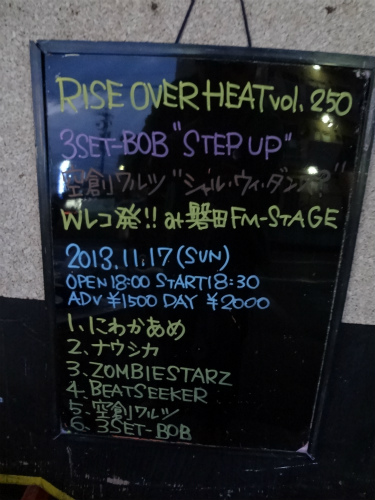 RISE OVER HEAT vol. 250
3SET-BOB "STEP UP"
空創ワルツ "シャル・ウィ・ダンス?"
Wレコ発!! at 磐田FM-STAGE
2013.11.17(SUN)
OPEN 18:00 START 18:30
ADV ¥1500 DAY ¥2000
1. にわかあめ
2. ナウシカ
3. ZOMBIESTARZ
4. BEATSEEKER
5. 空創ワルツ
6. 3SET-BOB